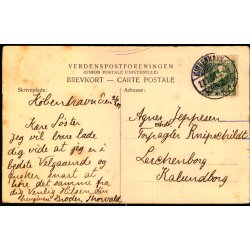 VERDENSPOSTFORENINGEN
(UNION POSTALE UNIVERSELLE)
BREVKORT — CARTE POSTALE
Skriveplads:
Adresse:
København
Kære Söster
Jeg vil bare lade
dig vide at jeg er i
bedste Velgaaende og
ønsker snart at
höre det samme fra
dig Venlig Hilsen din
Broder Thorvald
Agnes Jeppesen
Knipschildt
Lerchenborg
Kalundborg